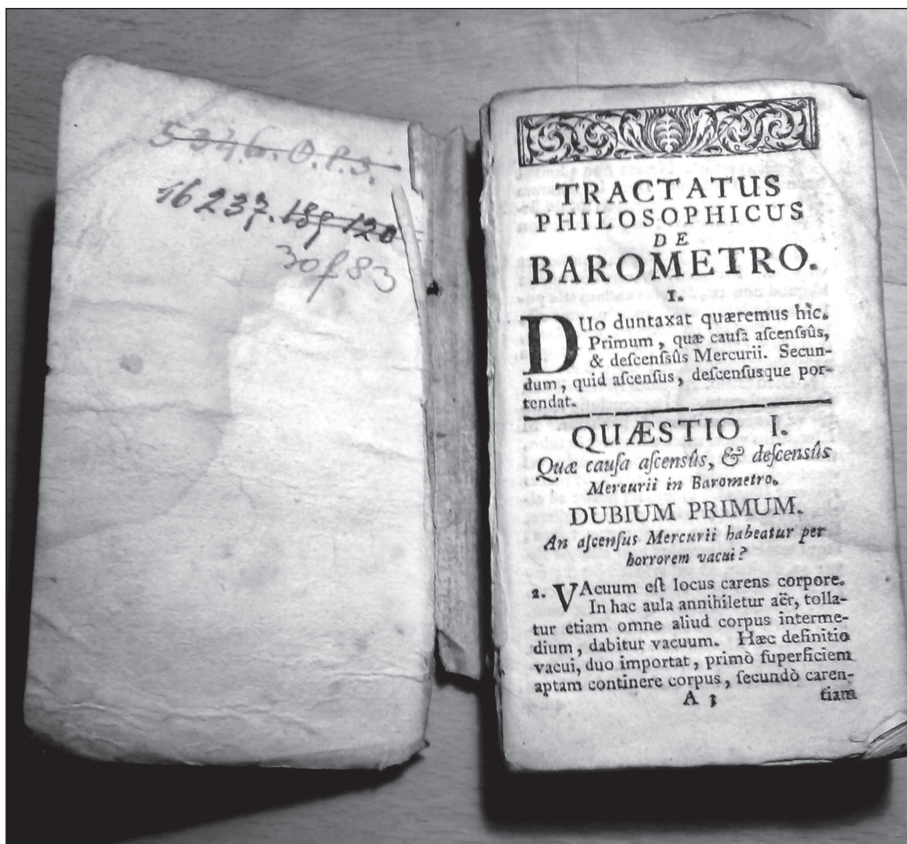 5346.O.P.3.
16237.189 120
30f83
TRACTATUS
PHILOSOPHICUS
DE
BAROMETRO.
I.
DUo duntaxat quæremus hîc.
Primum, quæ cauſa aſcenſsûs,
& deſcenſsûs Mercurii. Secun-
dum, quid aſcenſus, deſcenſusque por-
tendat.
QUÆSTIO I.
Quæ cauſa aſcensûs, & deſcensûs
Mercurii in Barometro.
DUBIUM PRIMUM.
An aſcenſus Mercurii habeatur per
horrorem vacui?
2. VAcuum eſt locus carens corpore.
In hac aula annihiletur aër, tolla-
tur etiam omne aliud corpus interme-
dium, dabitur vacuum. Hæc definitio
vacui, duo importat, primò ſuperficiem
aptam continere corpus, ſecundò caren-
A 3 tiam